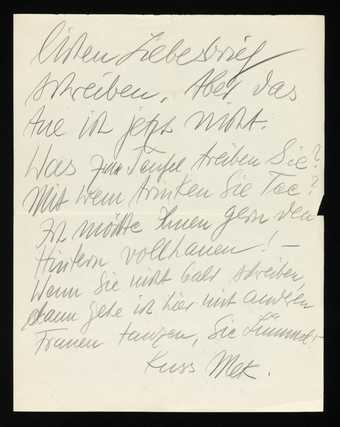 Einen Liebesbrief
schreiben. Aber das
tue ich jetzt nicht.
Was zum Teufel treiben Sie?
Mit wem trinken Sie Tee?
Ich möchte Ihnen gern den
Hintern vollhauen! –
Wenn Sie nicht bald schreiben,
dann gehe ich hier mit anderen
Frauen tanzen, Sie
Kuss Mek.